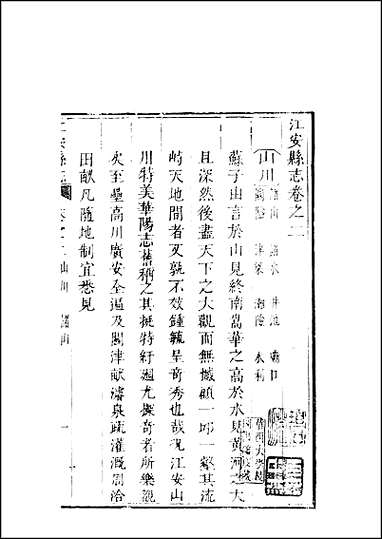 江安縣志卷之二
山川 諸山 諸水 井池 灘口 關隘 津梁 海隄 水利
蘇子由言於山見終南嵩華之高於水見黃河之大
且深然後盡天下之大觀而無憾顧一邱一壑其流
峙天地間者又孰不效鍾毓呈奇秀也哉況江安山
川特美華陽志舊稱之其挺特紆迴尤探奇者所樂觀
矣至壘高川廣安全過及關津獻瀦泉疏灌溉周洽
田猷凡隨地制宜悉見
江安縣志 卷之二 山川 諸山 一